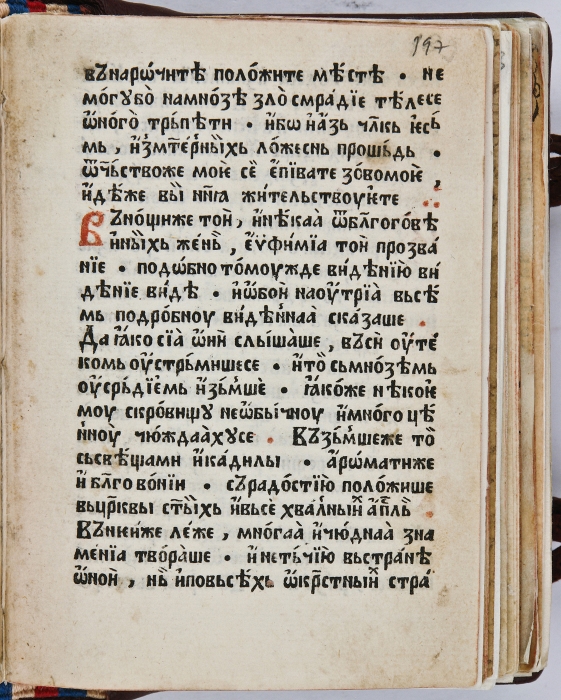 197
въ нарѡ́читѣ поло́жите мѣ́стѣ • не
мо́гꙋбо̀ намно́зѣ зло̀смра́дїе тѣ́лесе
ѡ҆́ного̀ трьпѣ́ти • и҆́бѡ и҆а́зь чл҃кь і҆есь́
мь , и҆з̾мт҃е́рны́ихь ло́жеснь проше́дь •
ѿч҃ьствоже моѐ сѐ е҆пїва́те зо́вомое ,
и҆дѣ́же вы̀ нн҃ꙗ жи́тельствоуѥте ⁘
Въ но́щиже тои́ , и҆нѣ́каа ѿбл҃гого́вѣ
и҆ны́ихь же́нь , еѵфи́мїа тои̇̀ прозва́
нїе • подо́бно то́моужде ви́дѣнїю ви́
дѣнїе ви́дѣ • и҆ѡ҆бои̇̀ наоу҆́трїа вьсѣ́
мь подро́бноу ви́дѣннаа ска́заше .
Да ꙗ҆́ко сїа̀ ѡ҆ни̇̀ слы́шаше , въси̇̀ оу҆те́
комь оу҆стрь́мишесе • и҆то̀ сьмно́зѣмь
оу҆се́рьдїемь и҆зь́мше̇̀ • ꙗ҆́коже нѣ́кое
моу скро́вищꙋ нео҆бы́чноу и҆мно́го цѣ́
нноу чю́ждаахꙋсе . Въ зь́мшеже то̀
сьсвѣ́щами и҆ка́дилы • а҆рѡ́матиже
и҆ бл҃го во́нїи • съ ра́достїю поло́жише
вьцр҃квы ст҃ы́ихь и҆вьсѐ хва́лныи́ а҆п҃ль
Въ ниѥ́иже ле́же , мно́гаа и҆чю́днаа зна́
ме́нїа тво́раше • и҆ неть́чїю вьстра́нѣ
ѡ҆нои̇̀ , нь̀ и҆повьсѣ́хь ѡ҆кр҃стныи́ стра